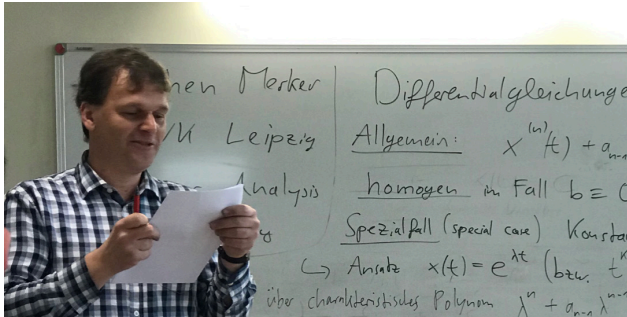 nen Merker
K Leipzig
Analysis
Differentialgleichunge
Allgemein: x^(n)(t) + a_n-1
homogen im Fall b ≡ 0
Spezialfall (special case) Konsta
↳ Ansatz x(t) = e^λt (bzw. t^k
über charakteristisches Polynom λ^n + a_n-1 λ^n-1